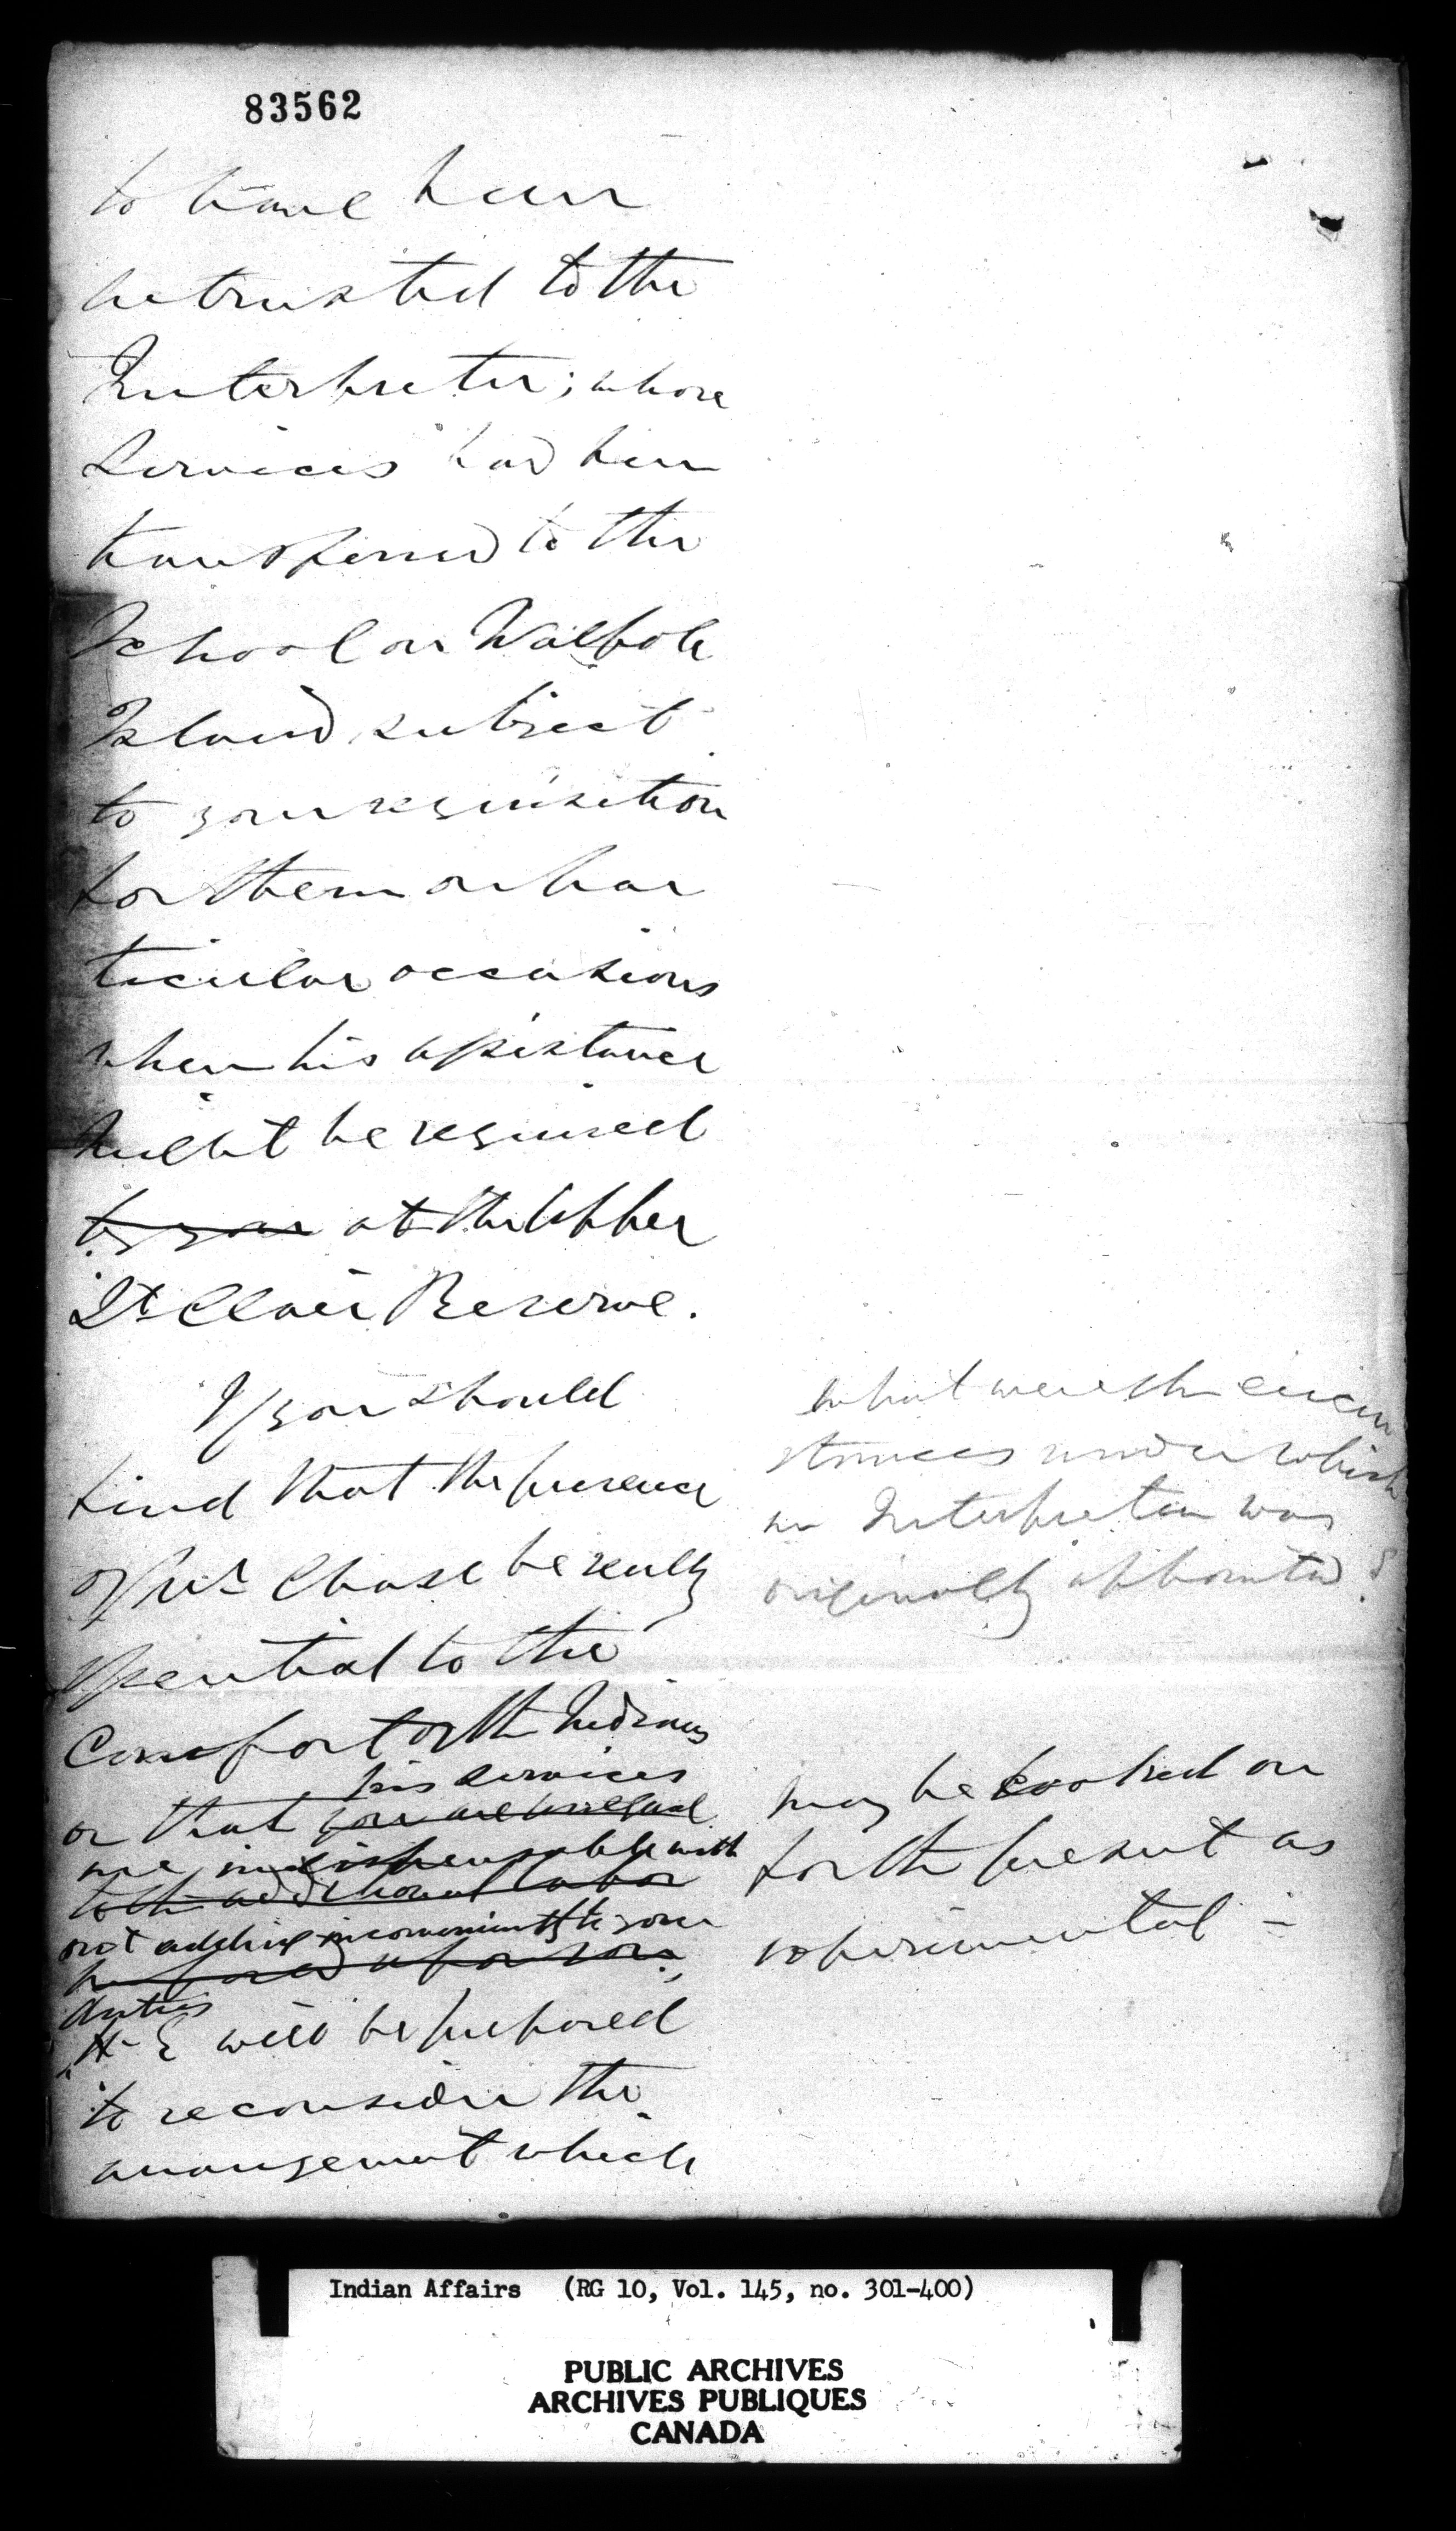 83562
to time been
intrusted to the
Interpreter; whose
Services had been
transferred to the
School on Walpole
Island subject
to your requisition
for them on par
ticular occasions
when his assistance
might be required
by you at the Upper
St Clair Reserve.
If you should
find that the presence
of Mr Chase be really
essential to the
Comfort of the Indians
his services
or that you are unequal
are indispensable with
to the additional labor
out adding inconveniently to your
imposed upon you,
duties
H- E will be prepared
to reconsider the
arrangement which
What were the circum
stances under which
an Interpreter was
originally appointed?
may be looked on
for the present as
experimental -
Indian Affairs (RG 10, Vol. 145, no. 301-400)
PUBLIC ARCHIVES
ARCHIVES PUBLIQUES
CANADA